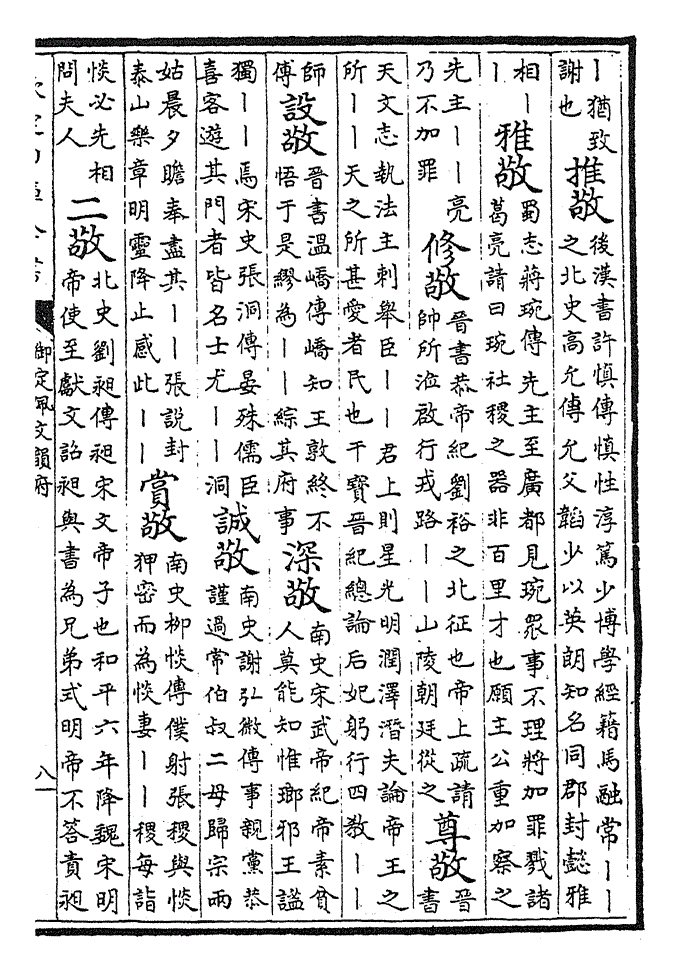 丨猶致
謝也
推敬
後漢書許慎傳慎性淳篤少博學經籍馬融常丨丨
之北史高允傳允父韜少以英朗知名同郡封懿雅
相丨
丨
雅敬
蜀志蔣琬傳先主至廣都見琬眾事不理將加罪戮諸
葛亮請曰琬社稷之器非百里才也願主公重加察之
先主丨丨亮
乃不加罪
修敬
晉書恭帝紀劉裕之北征也帝上疏請
帥所涖啟行戎路丨丨山陵朝廷從之
尊敬
晉
書
天文志執法主刺舉臣丨丨君上則星光明潤澤潛夫論帝王之
所丨丨天之所甚愛者民也干寶晉紀總論后妃躬行四教丨丨
師
傅
設敬
晉書溫嶠傳嶠知王敦終不
悟于是繆為丨丨綜其府事
深敬
南史宋武帝紀帝素貧
人莫能知惟瑯邪王謐
獨丨丨焉宋史張洞傳晏殊儒臣
喜客遊其門者皆名士尤丨丨洞
誠敬
南史謝弘微傳事親黨恭
謹過常伯叔二母歸宗兩
姑晨夕瞻奉盡其丨丨張說封
泰山樂章明靈降止感此丨丨
賞敬
南史柳惔傳僕射張稷與惔
狎密而為惔妻丨丨稷每詣
惔必先相
問夫人
二敬
北史劉昶傳昶宋文帝子也和平六年降魏宋明
帝使至獻文詔昶與書為兄弟式明帝不答責昶
御定佩文韻府
八